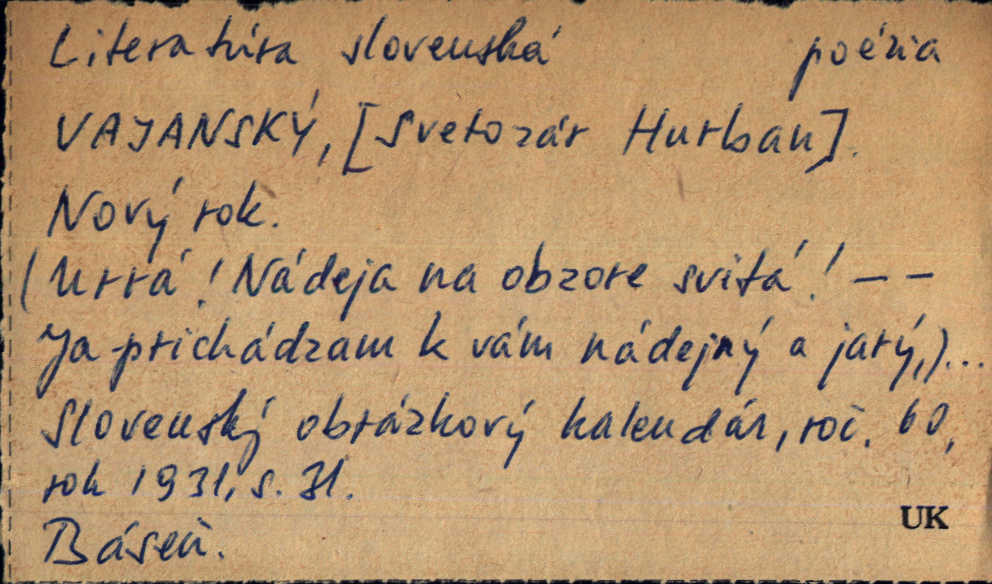 Literatúra slovenská poézia
VAJANSKÝ, [Svetozár Hurban].
Nový rok.
(Urrá! Nádeja na obzore svitá! — —
Ja prichádzam k vám nádejný a jarý,)...
Slovenský obrázkový kalendár, roč. 60,
rok 1931, s. 31.
UK
Báseň.